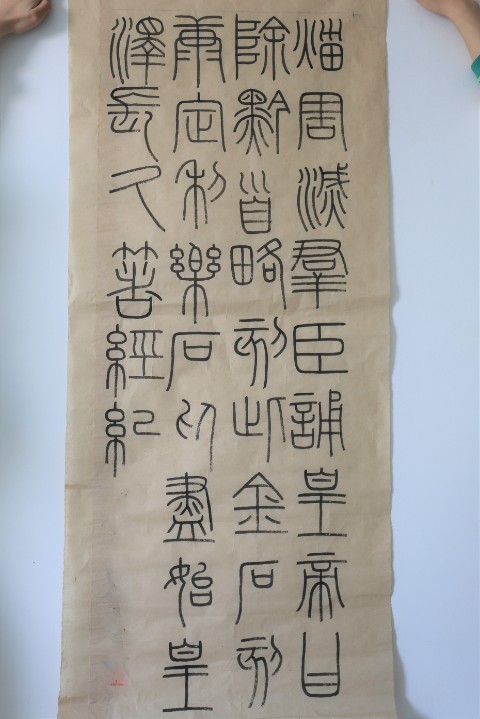 災害滅羣臣誦皇帝曰
除黔首略刻此金石刻
康定利樂石以盡始皇
澤長久著經紀